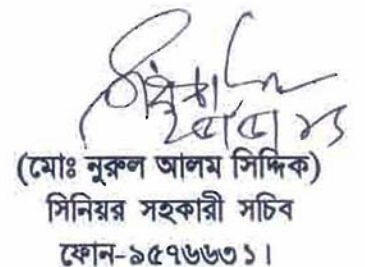 (মোঃ নুরুল আলম সিদ্দিক)
সিনিয়র সহকারী সচিব
ফোন-৯৫৭৬৬৩১।